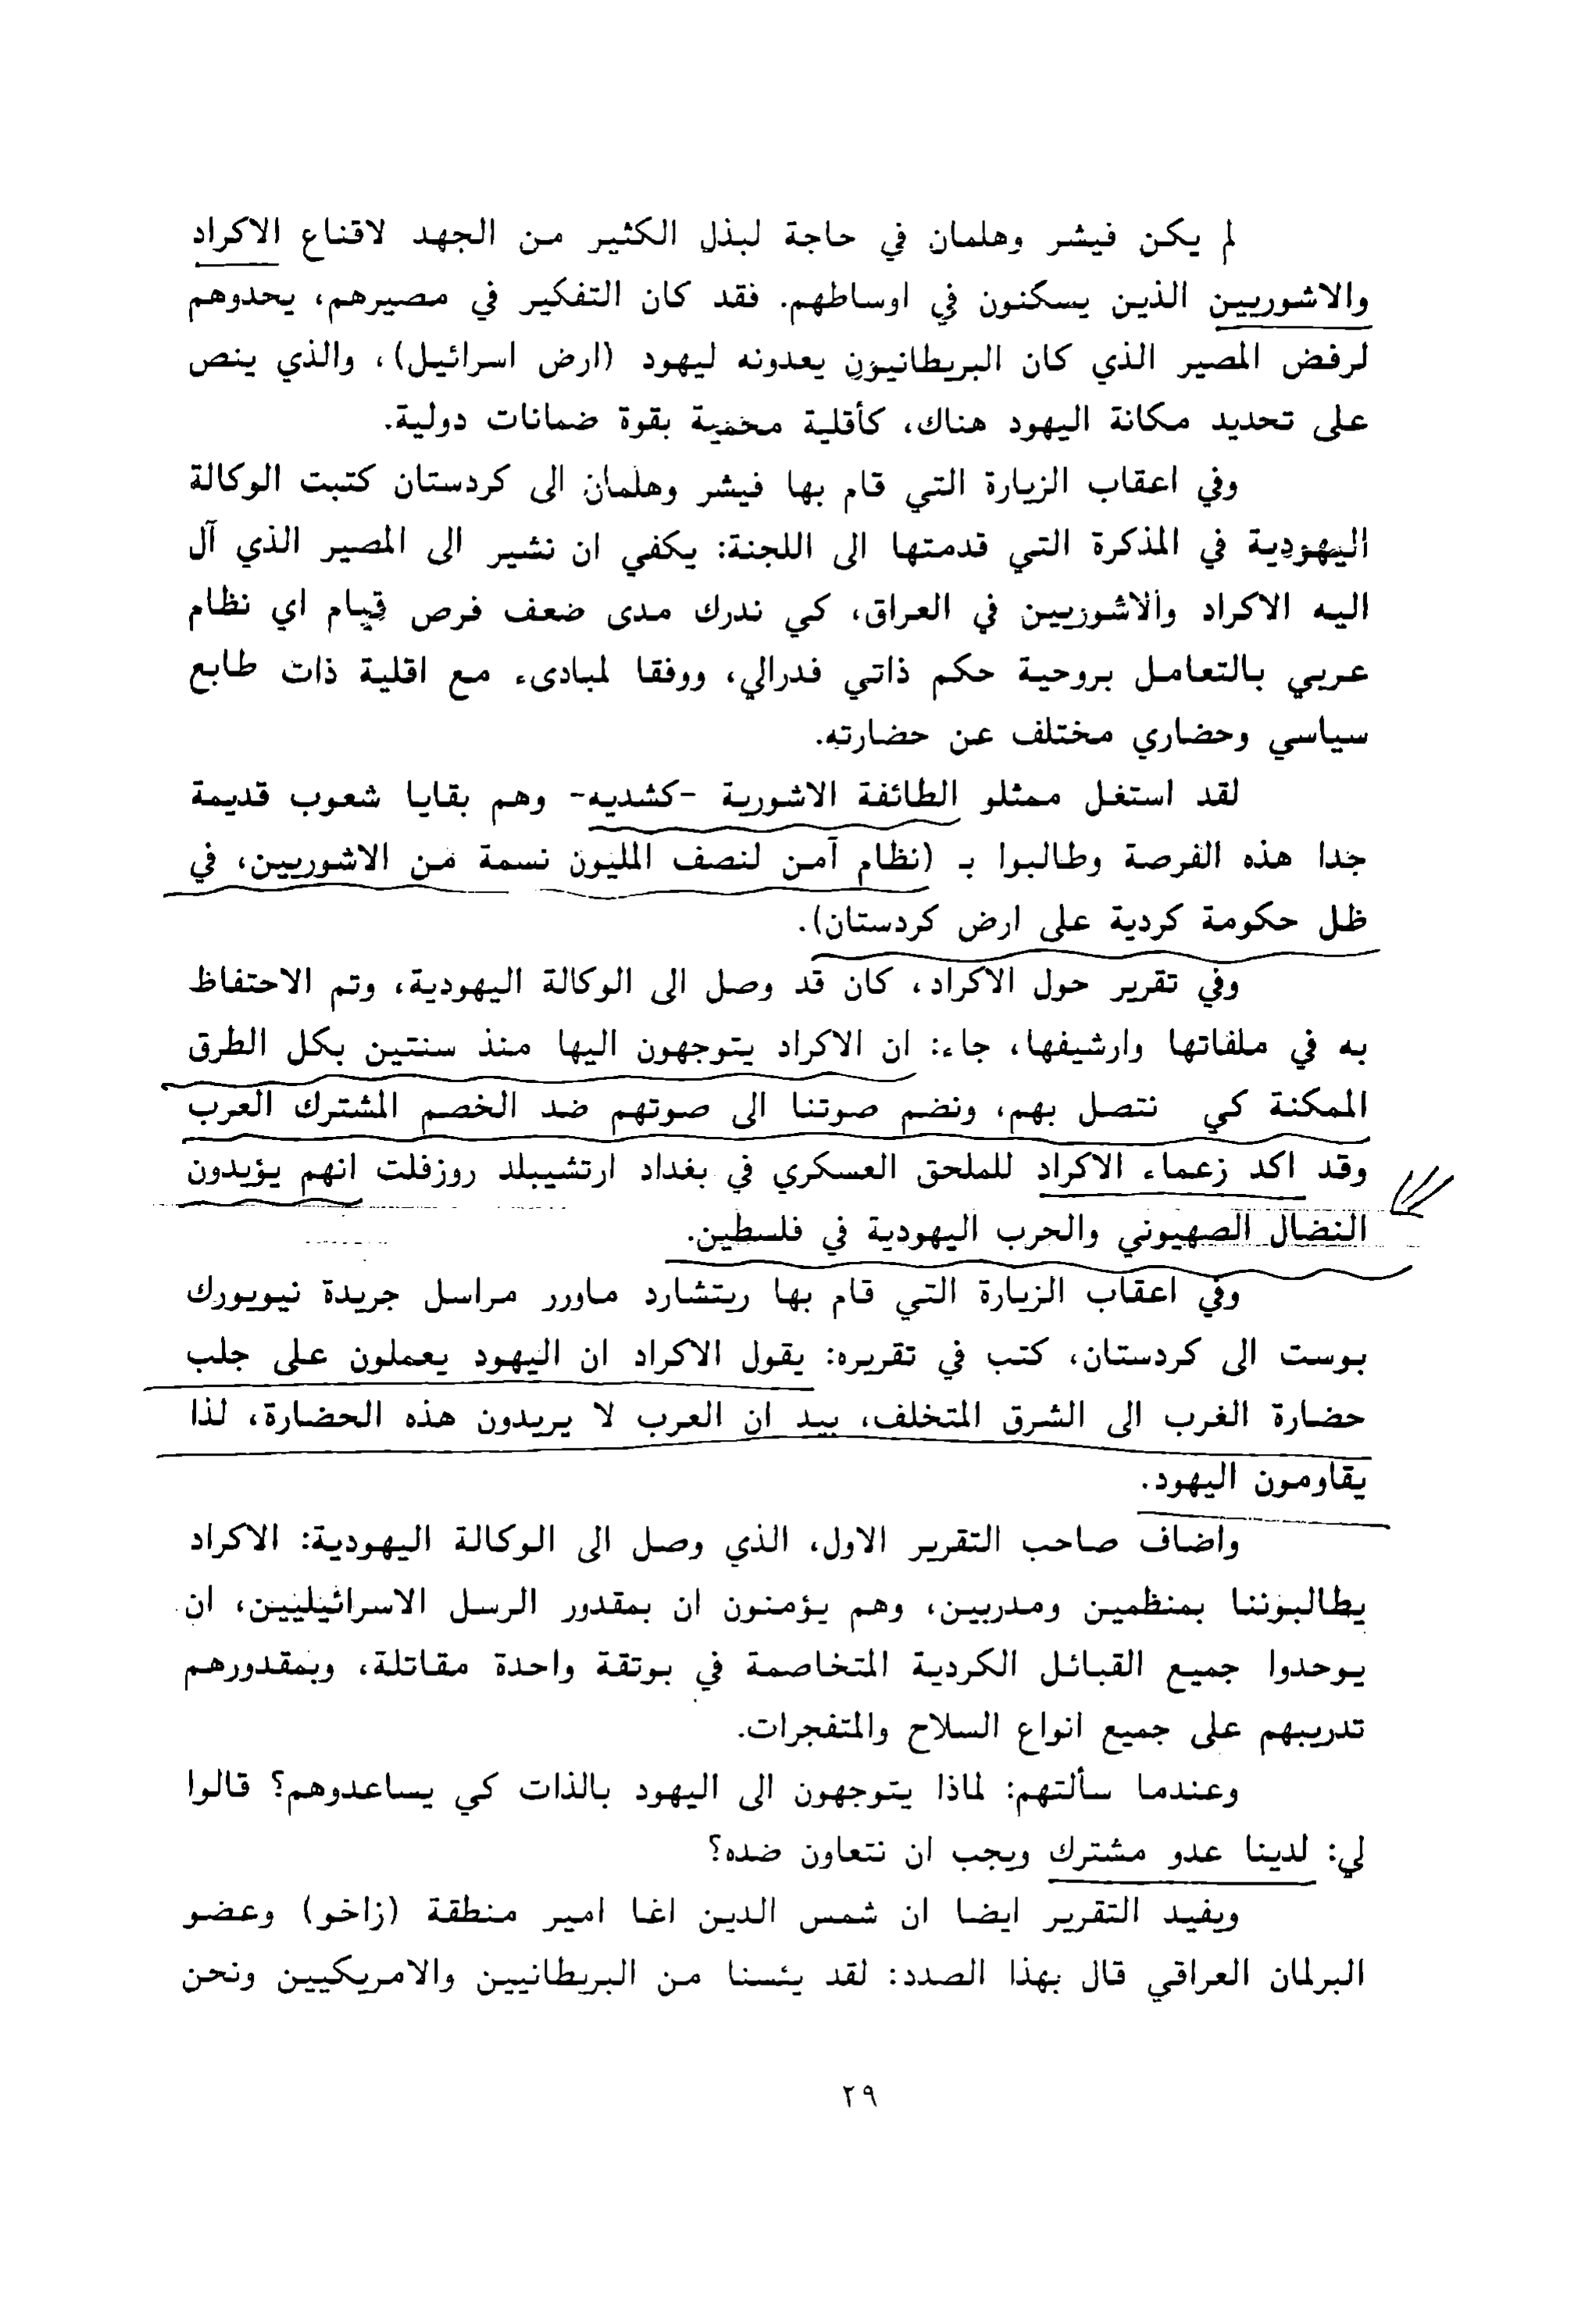 لم يكن فيشر وهلمان في حاجة لبذل الكثير من الجهد لاقناع الاكراد
والاشوريين الذين يسكنون في اوساطهم. فقد كان التفكير في مصيرهم، يحدوهم
لرفض المصير الذي كان البريطانيون يعدونه ليهود (ارض اسرائيل)، والذي ينص
على تحديد مكانة اليهود هناك، كأقلية محمية بقوة ضمانات دولية.
وفي اعقاب الزيارة التي قام بها فيشر وهلمان الى كردستان كتبت الوكالة
اليهودية في المذكرة التي قدمتها الى اللجنة: يكفي ان نشير الى المصير الذي آل
اليه الاكراد والاشوريين في العراق، كي ندرك مدى ضعف فرص قيام اي نظام
عربي بالتعامل بروحية حكم ذاتي فدرالي، ووفقا لمبادىء مع اقلية ذات طابع
سياسي وحضاري مختلف عن حضارته.
لقد استغل ممثلو الطائفة الاشورية -كشديه- وهم بقايا شعوب قديمة
جدا هذه الفرصة وطالبوا بـ (نظام آمن لنصف المليون نسمة من الاشوريين، في
ظل حكومة كردية على ارض كردستان).
وفي تقرير حول الاكراد، كان قد وصل الى الوكالة اليهودية، وتم الاحتفاظ
به في ملفاتها وارشيفها، جاء: ان الاكراد يتوجهون اليها منذ سنتين بكل الطرق
الممكنة كي نتصل بهم، ونضم صوتنا الى صوتهم ضد الخصم المشترك العرب
وقد اكد زعماء الاكراد للملحق العسكري في بغداد ارتشيبلد روزفلت انهم يؤيدون
النضال الصهيوني والحرب اليهودية في فلسطين.
وفي اعقاب الزيارة التي قام بها ريتشارد ماورر مراسل جريدة نيويورك
بوست الى كردستان، كتب في تقريره: يقول الاكراد ان اليهود يعملون على جلب
حضارة الغرب الى الشرق المتخلف، بيد ان العرب لا يريدون هذه الحضارة، لذا
يقاومون اليهود.
واضاف صاحب التقرير الاول، الذي وصل الى الوكالة اليهودية: الاكراد
يطالبوننا بمنظمين ومدربين، وهم يؤمنون ان بمقدور الرسل الاسرائيليين، ان
يوحدوا جميع القبائل الكردية المتخاصمة في بوتقة واحدة مقاتلة، وبمقدورهم
تدريبهم على جميع انواع السلاح والمتفجرات.
وعندما سألتهم: لماذا يتوجهون الى اليهود بالذات كي يساعدوهم؟ قالوا
لي: لدينا عدو مشترك ويجب ان نتعاون ضده؟
ويفيد التقرير ايضا ان شمس الدين اغا امير منطقة (زاخو) وعضو
البرلمان العراقي قال بهذا الصدد: لقد يئسنا من البريطانيين والامريكيين ونحن
٢٩